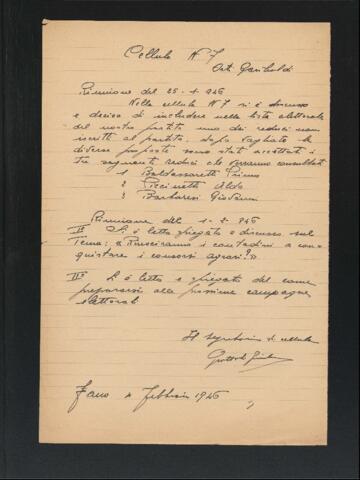 Cellula N. 7
Ort. Garibaldi
Riunione del 25-1-946
Nella cellula N 7 si è discusso
e deciso di includere nella lista elettorale
del nostro partito uno dei reduci non
iscritti al partito, dopo vagliate le
diverse proposte sono stati accettati i
tre seguenti reduci che verranno consultati
1 Baldassaretti Primo
2 Piccinetti Aldo
3 Barbaresi Giovanni
Riunione del 1-2-946
Iº Si è letto spiegato e discusso sul
Tema: « Riusciranno i contadini a con
quistare i consorzi agrari? »
IIº Si è letto e spiegato del come
prepararsi alla prossima campagna
elettorale
Il segretario di cellula
Fano Febbraio 1946